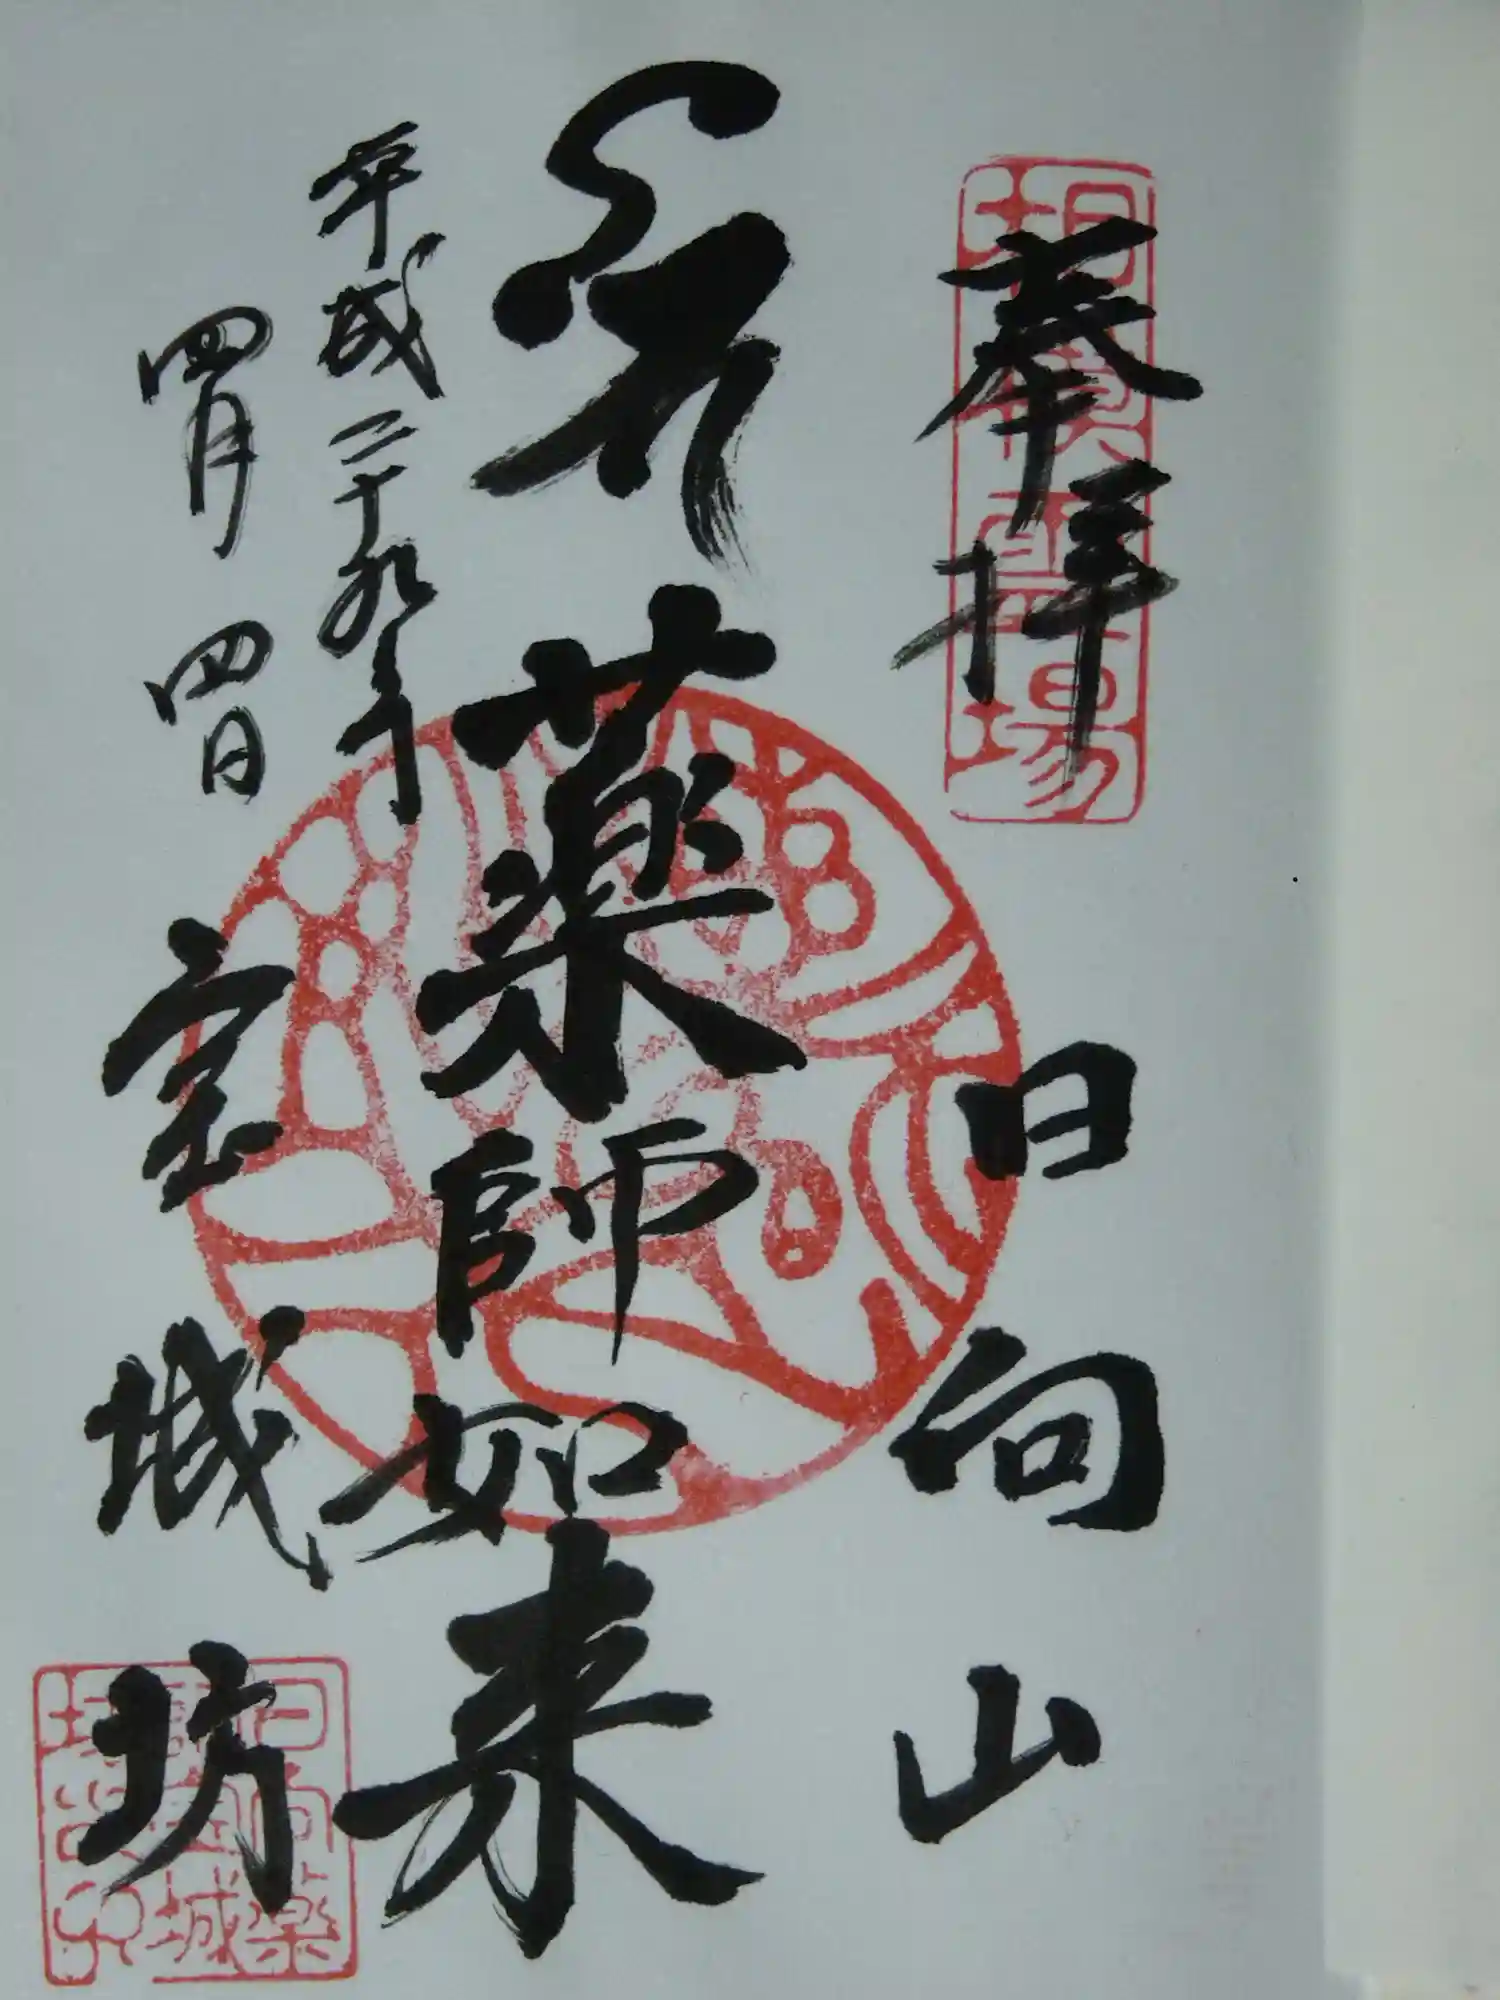 奉拝
日向山
薬師如来
平成二十九年
四月四日
宝城坊